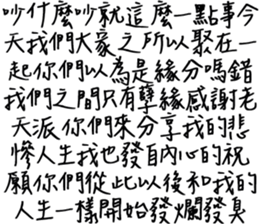 吵什麼吵就這麼一點事今
天我們大家之所以聚在一
起你們以為是緣分嗎錯
我們之間只有孽緣感謝老
天派你們來分享我的悲
慘人生我也發自內心的祝
願你們從此以後和我的
人生一樣開始發爛發臭